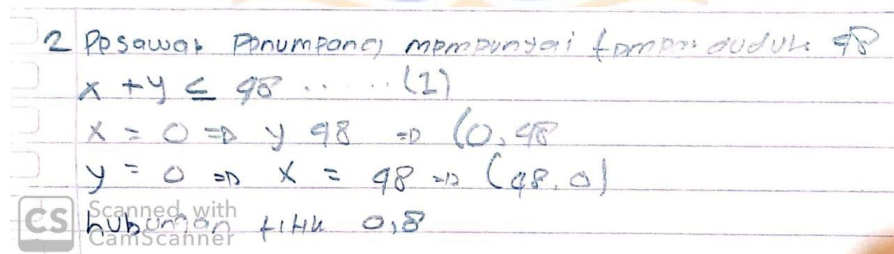 2 Pesawat Penumpang mempunyai tempat duduk 48
x + y ≤ 48 ..... (1)
x = 0 => y 48 => (0,48
y = 0 => x = 48 => (48.0)
hubungan titik 0,8
CS Scanned with
CamScanner